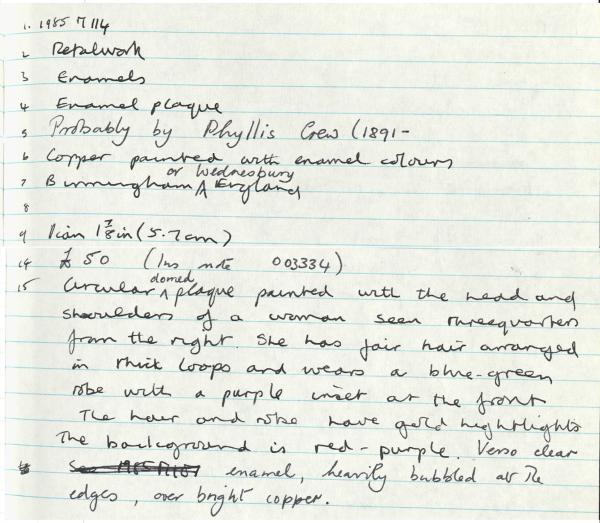 1. 1985 M 114
2 Metalwork
3 Enamels
4 Enamel plaque
5 Probably by Phyllis Crew (1891-
6 Copper painted with enamel colours
or Wednesbury
7 Birmingham ^ England
8
9 Diam 1 7/8 in (5.7cm)
14 £50 (Ins note 003334)
domed
15 Circular ^ plaque painted with the head and
shoulders of a woman seen threequarters
from the right. She has fair hair arranged
in thick loops and wears a blue-green
robe with a purple inset at the front
The hair and robe have gold highlights
The background is red-purple. Verso clear
enamel, heavily bubbled at the
edges, over bright copper.